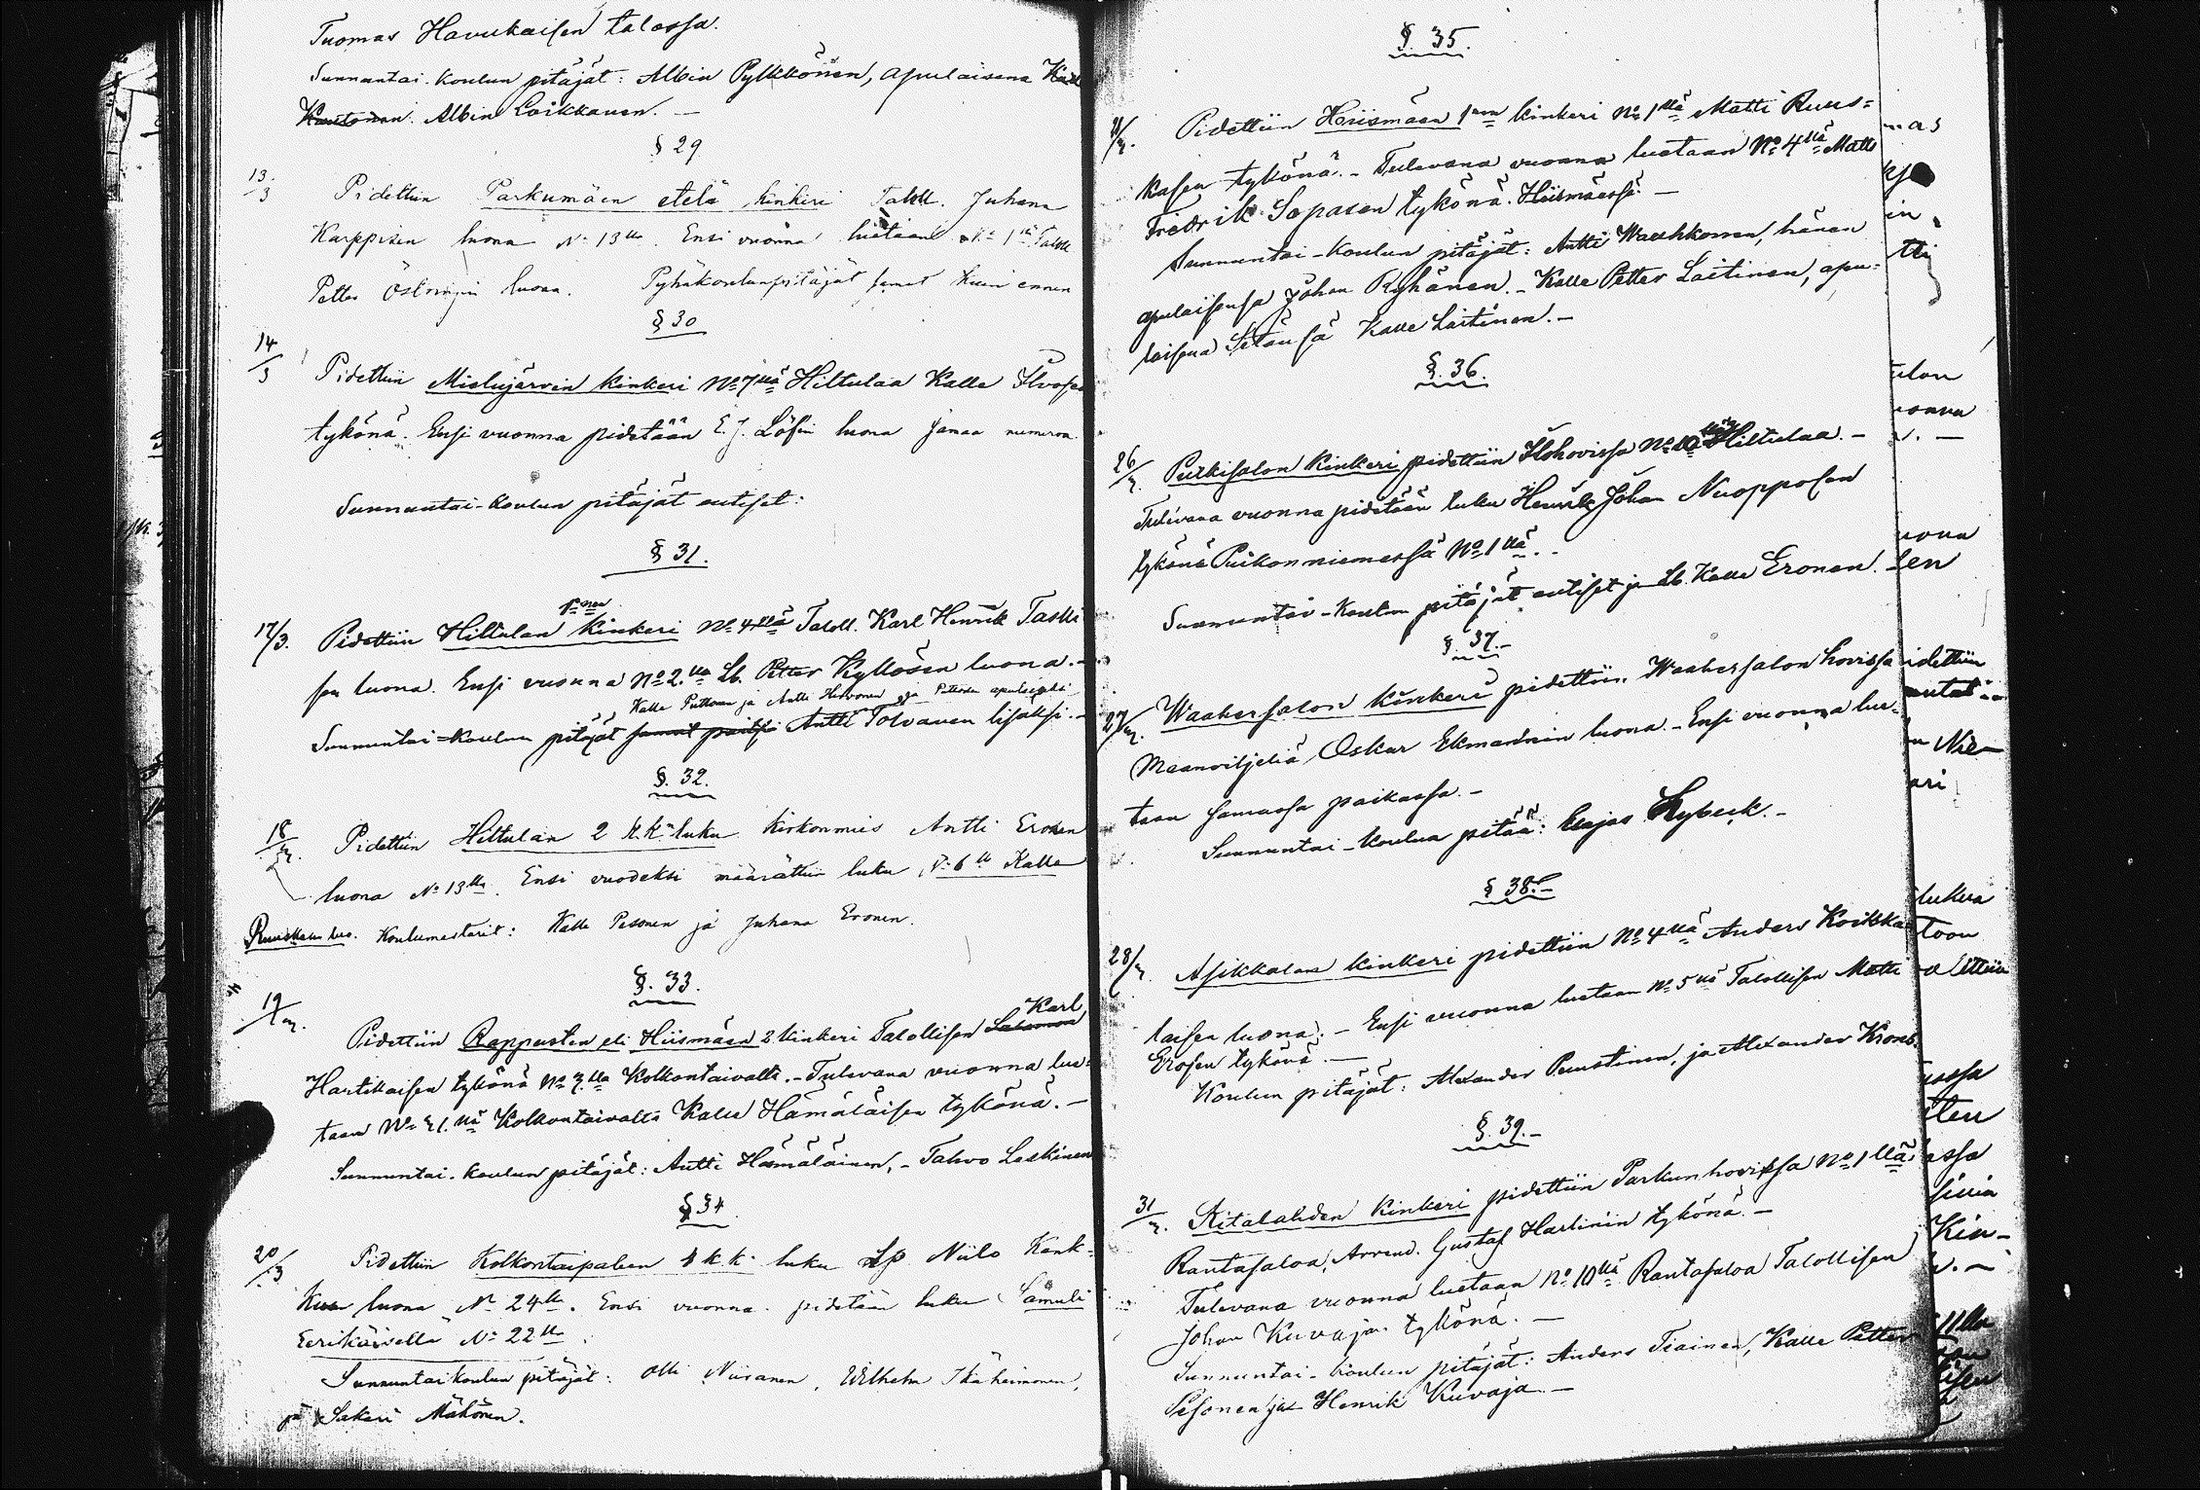 Tuomas Havukaisen talossa.
Sunnuntai-koulun pitäjät: Albin Pylkkönen, apulaisena
Albin Loikkanen. —
§ 29
13/3 Pidettiin Parkumäen etelä kinkeri Taloll. Juhana
Karppisen luona No 13lla. Ensi vuonna luetaan No 1llä Taloll
Petter luona. Pyhäkoulunpitäjät samat kuin ennen
§ 30
14/3 Pidettiin Mielujärven kinkeri No 7llä Hiltulaa Kalle Ilvosen
tykönä. Ensi vuonna pidetään E. J. Löfin luona samaa numeroa.
Sunnuntai-koulun pitäjät entiset:
§ 31.
17/3. Pidettiin Hiltulan 1nen kinkeri No 4llä Taloll. Karl Henrik Taski
sen luona. Ensi vuonna No 2.lla Lb. Petter Kyllösen luona. —
Kalle Puttonen ja Antti Hirvonen ja Pettersen apulaiseksi
Sunnuntai-koulun pitäjät samat paitsi Antti Tolvanen lisäksi. —
§. 32.
18/3. Pidettiin Hiltulan 2 k.k. luku kirkonmies Antti Eronen
luona No 13lla. Ensi vuodeksi määrättiin luku No 6lla Kalle
Ruuskasen luo. Koulumestarit: Kalle Pesonen ja Juhana Eronen.
§. 33.
19/3. Pidettiin Rappusten eli Hiismäen 2 kinkeri Talollisen Salomon Karl
Hartikaisen tykönä No 7.llä Kolkontaivalta. — Tulevana vuonna lue-
taan No 21.llä Kolkontaivalta Kalle Hämäläisen tykönä. —
Sunnuntai-koulun pitäjät: Antti Hämäläinen, — Tahvo Laskinen
§ 34
20/3 Pidettiin Kolkontaipaleen 1 k.k. luku Lp Niilo Kank-
luona No 24lla. Ensi vuonna pidetään luku Samuli
Eerikäisellä No 22lla.
Sunnuntaikoulun pitäjät: Olli Niiranen, Wilhelm Ikäheimonen,
ja Sakari Mähönen.
§. 35.
21/3. Pidettiin Hiismäen 1nen kinkeri No 1llä Matti Ruus-
kasen tykönä. — Tulevana vuonna luetaan No 4llä Matts
Fredrik Sapasen tykönä Hiismäessä. —
Sunnuntai-koulun pitäjät: Antti Waahkonen, hänen
apulaisensa Johan Ryhänen. — Kalle Petter Laitinen, apu-
laisena Setänsä Kalle Laitinen. —
§. 36.
26/3. Putkisalon kinkeri pidettiin Ilohovissa No 10llä Hiltulaa. —
Tulevana vuonna pidetään luku Henrik Johan Nuopposen
tykönä Puikonniemessä No 1llä. —
Sunnuntai-Koulun pitäjät entiset ja Lb. Kalle Eronen.
§. 37. —
27/3. Waahersalon kinkeri pidettiin Waahersalon hovissa
Maanviljeliä Oskar Ekmannin luona. — Ensi vuonna lue-
taan samassa paikassa. —
Sunnuntai-koulua pitää: Nybeck. —
§ 38. —
28/3. Asikkalan kinkeri pidettiin No 4llä Anders Koikka-
laisen luona. — Ensi vuonna luetaan No 5llä Talollisen Matti
Erosen tykönä. —
Koulun pitäjät: Alexander Puustinen, ja Alexander
§. 39. —
31/3. Kitalahden kinkeri pidettiin Parkunhovissa No 1llä
Rantasaloa, Arrend. Gustaf Harlinin tykönä. —
Tulevana vuonna luetaan No 10llä Rantasaloa Talollisen
Johan Kuvajan tykönä. —
Sunnuntai-koulun pitäjät: Anders Tiainen, Kalle Petter
Pesonen ja Henrik Kuvaja. —